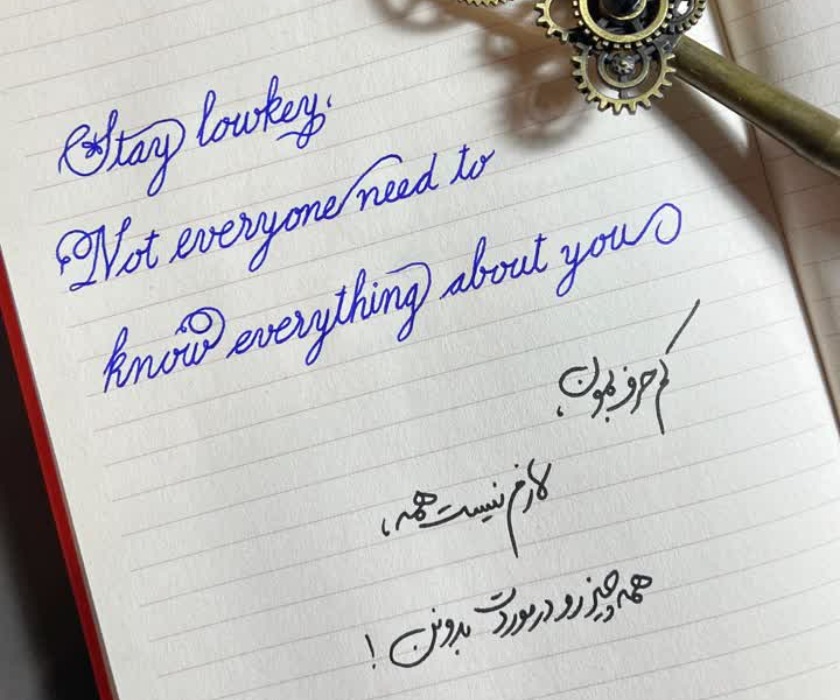 Stay lowkey.
Not everyone need to
know everything about you
کم حرف بمون.
لازم نیست همه،
همه چیز رو در موردت بدونن!